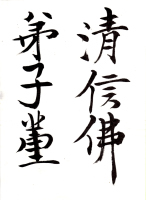 清信佛
弟子輩